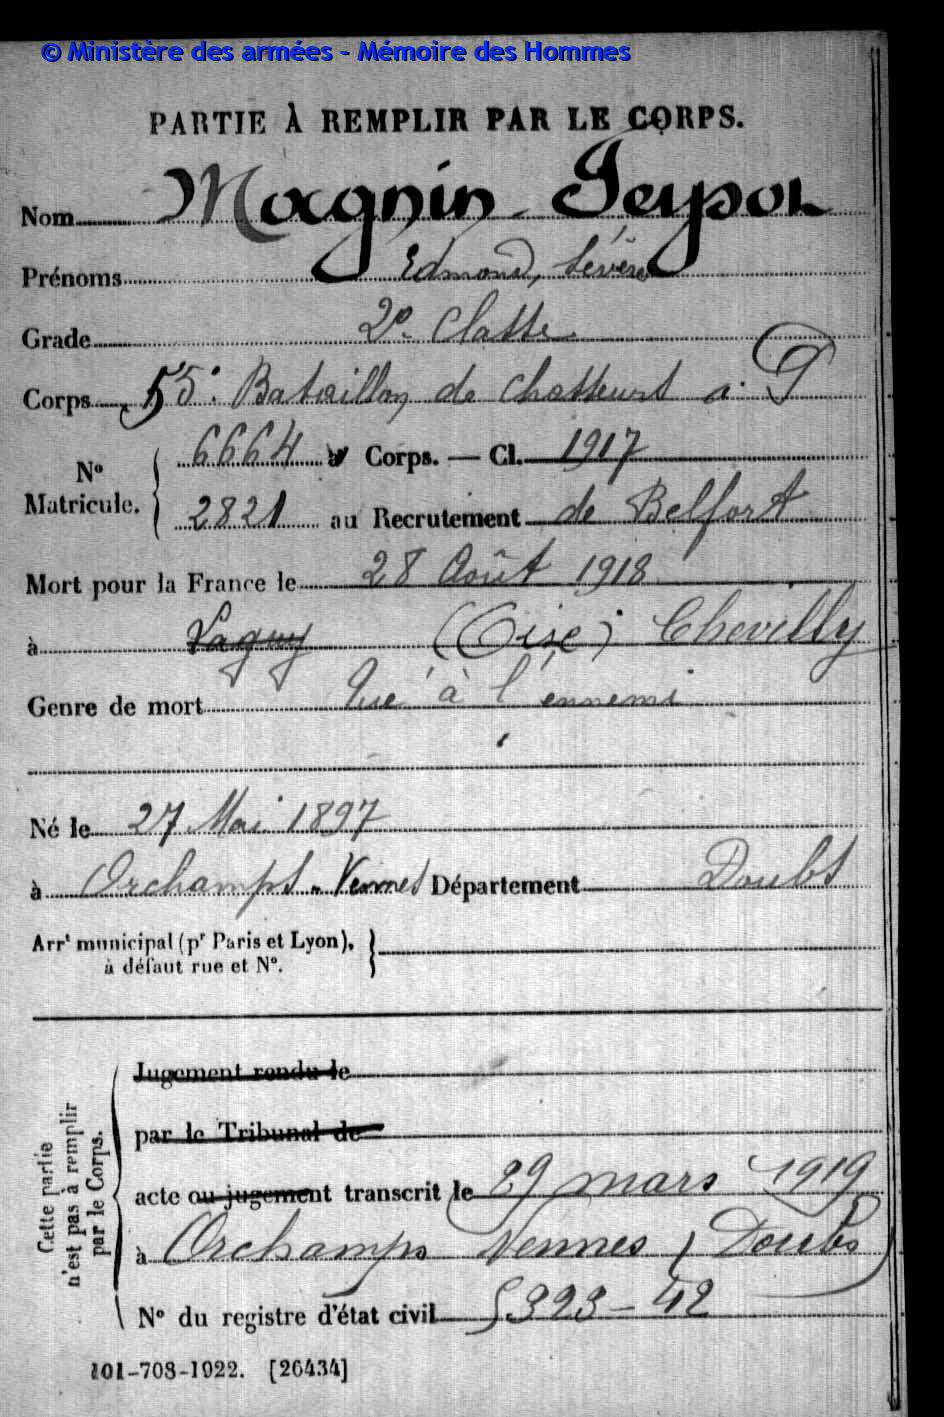 © Ministère des armées - Mémoire des Hommes
PARTIE À REMPLIR PAR LE CORPS.
Nom Magnin-Feysot
Prénoms Edmond, Sévère
Grade 2e Classe
Corps 55e Bataillon de Chasseurs à P
No Matricule. 6664 au Corps. — Cl. 1917
2821 au Recrutement de Belfort
Mort pour la France le 28 Août 1918
à Lagny (Oise) Chevilly
Genre de mort Tué à l'ennemi
Né le 27 Mai 1897
à Orchamps-Vennes Département Doubs
Arrt municipal (pr Paris et Lyon),
à défaut rue et No.
Cette partie n'est pas à remplir par le Corps.
Jugement rendu le
par le Tribunal de
acte ou jugement transcrit le 29 mars 1919
à Orchamps Vennes (Doubs)
No du registre d'état civil 5323-42
101-708-1922. [26434]